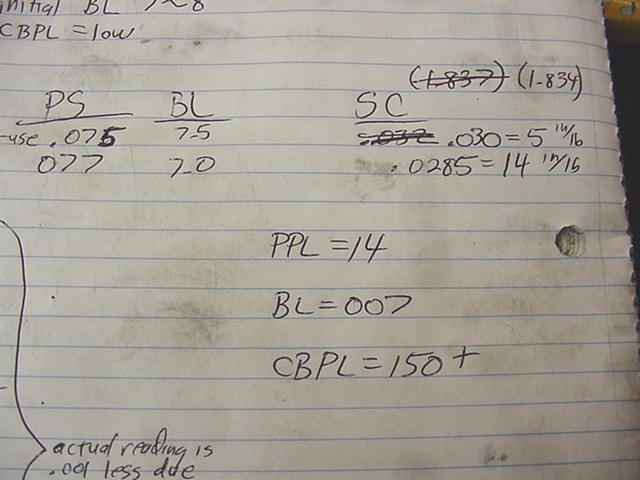 initial BL >~8
CBPL = low
(1.837) (1.834)
PS BL SC
use .075 7.5 .032 .030 = 5 in/lb
077 7.0 .0285 = 14 in/lb
PPL = 14
BL = 007
CBPL = 150+
actual reading is
.001 less due